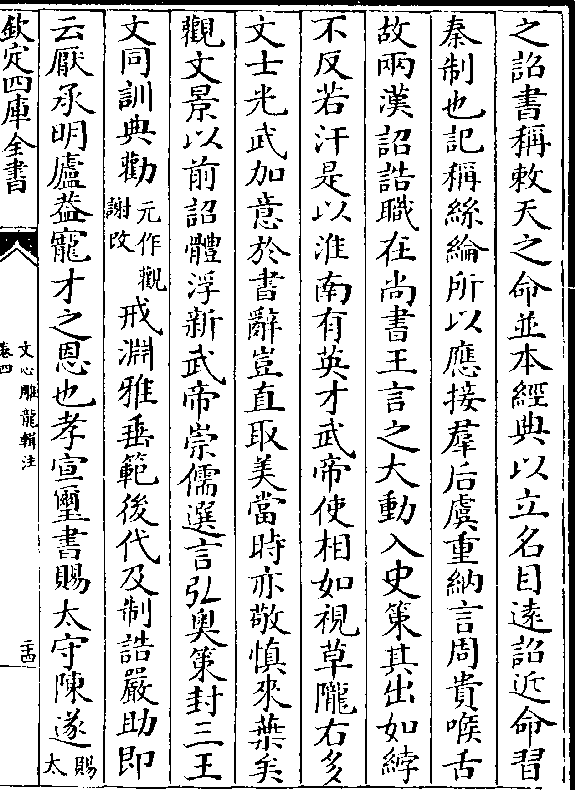 之詔書稱敕天之命並本經典以立名目遠詔近命習
秦制也記稱絲綸所以應接羣后虞重納言周貴喉舌
故兩漢詔誥職在尚書王言之大動入史策其出如綍
不反若汗是以淮南有英才武帝使相如視草隴右多
文士光武加意於書辭豈直取美當時亦敬慎來葉矣
觀文景以前詔體浮新武帝崇儒選言弘奧策封三王
文同訓典勸元作觀謝改戒淵雅垂範後代及制誥嚴助即
云厭承明廬葢寵才之恩也孝宣璽書賜太守陳遂賜太
欽定四庫全書
文心雕龍輯注
卷四
二十四